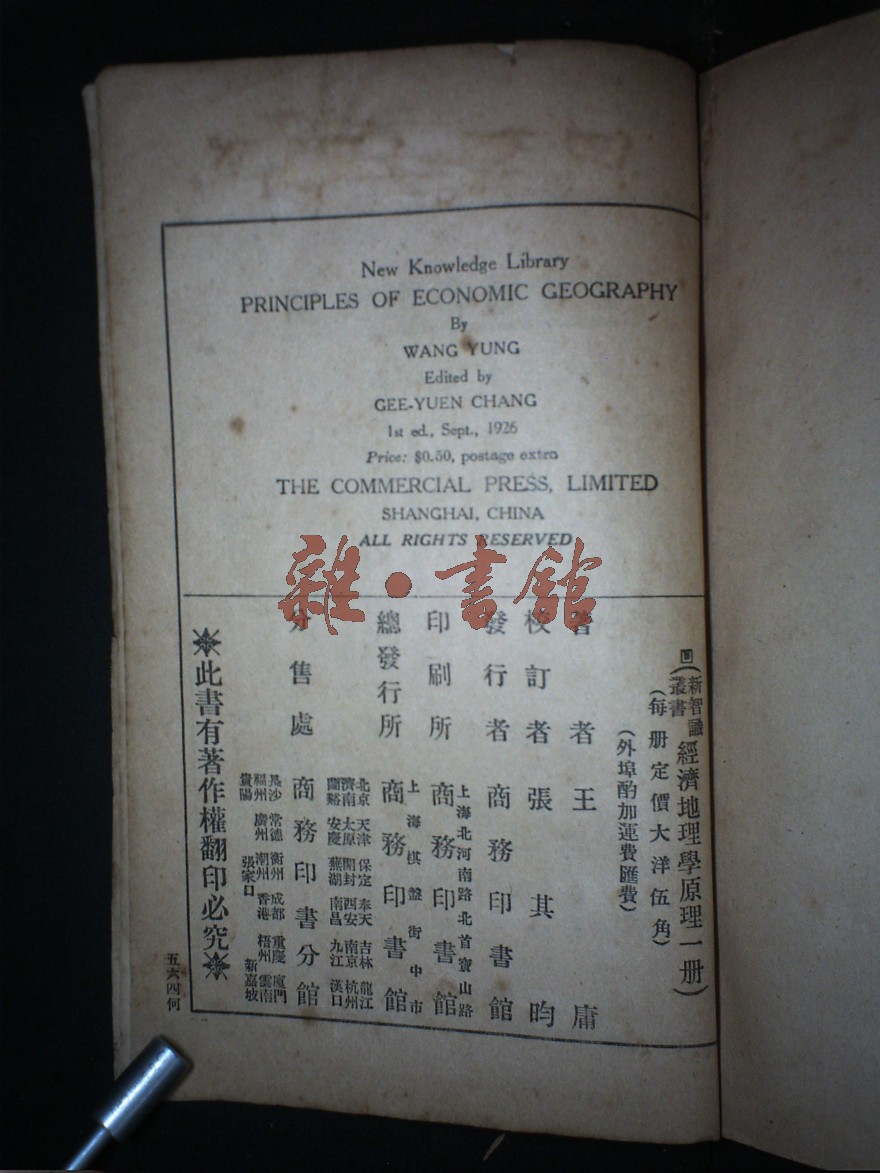 New Knowledge Library
PRINCIPLES OF ECONOMIC GEOGRAPHY
By
WANG YUNG
Edited by
GEE-YUEN CHANG
1st ed., Sept., 1926
Price: $0.50, postage extra
THE COMMERCIAL PRESS, LIMITED
SHANGHAI, CHINA
ALL RIGHTS RESERVED
雜•書館
(新智識叢書 經濟地理學原理一册)
(每册定價大洋伍角)
(外埠酌加運費匯費)
著者 王庸
校訂者 張其昀
發行者 商務印書館
上海北河南路北首寶山路
印刷所 商務印書館
上海棋盤街中市
總發行所 商務印書館
北京 天津 保定 奉天 吉林 龍江
濟南 太原 開封 西安 南京 杭州
蘭谿 安慶 蕪湖 南昌 九江 漢口
分售處 商務印書分館
長沙 常德 衡州 成都 重慶 廈門
福州 廣州 潮州 香港 梧州 雲南
貴陽 張家口 新嘉坡
此書有著作權翻印必究
五六四何